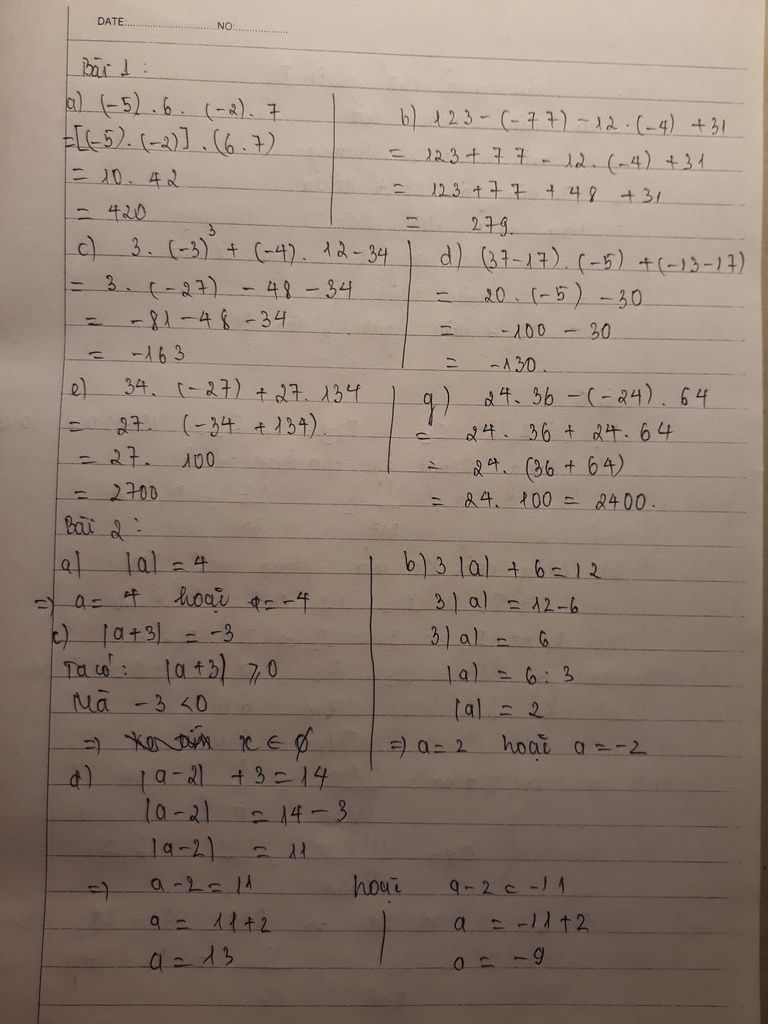 DATE:..............................NO:..................
Bài 1 :
a) (-5) . 6 . (-2) . 7
= [(-5) . (-2)] . (6 . 7)
= 10 . 42
= 420
b) 123 - (-77) - 12 . (-4) + 31
= 123 + 77 - 12 . (-4) + 31
= 123 + 77 + 48 + 31
= 279.
c) 3 . (-3)³ + (-4) . 12 - 34
= 3 . (-27) - 48 - 34
= -81 - 48 - 34
= -163
d) (37-17) . (-5) + (-13-17)
= 20 . (-5) - 30
= -100 - 30
= -130.
e) 34 . (-27) + 27 . 134
= 27 . (-34 + 134)
= 27 . 100
= 2700
g) 24 . 36 - (-24) . 64
= 24 . 36 + 24 . 64
= 24 . (36 + 64)
= 24 . 100 = 2400.
Bài 2 :
a) |a| = 4
=> a = 4 hoặc a = -4
b) 3 |a| + 6 = 12
3 |a| = 12 - 6
3 |a| = 6
|a| = 6 : 3
|a| = 2
=> a = 2 hoặc a = -2
c) |a+3| = -3
Ta có : |a+3| ⩾ 0
Mà -3 < 0
=> x ∈ ∅
d) |a-2| + 3 = 14
|a-2| = 14 - 3
|a-2| = 11
=> a - 2 = 11 hoặc a - 2 = -11
a = 11 + 2
a = 13
a = -11 + 2
a = -9